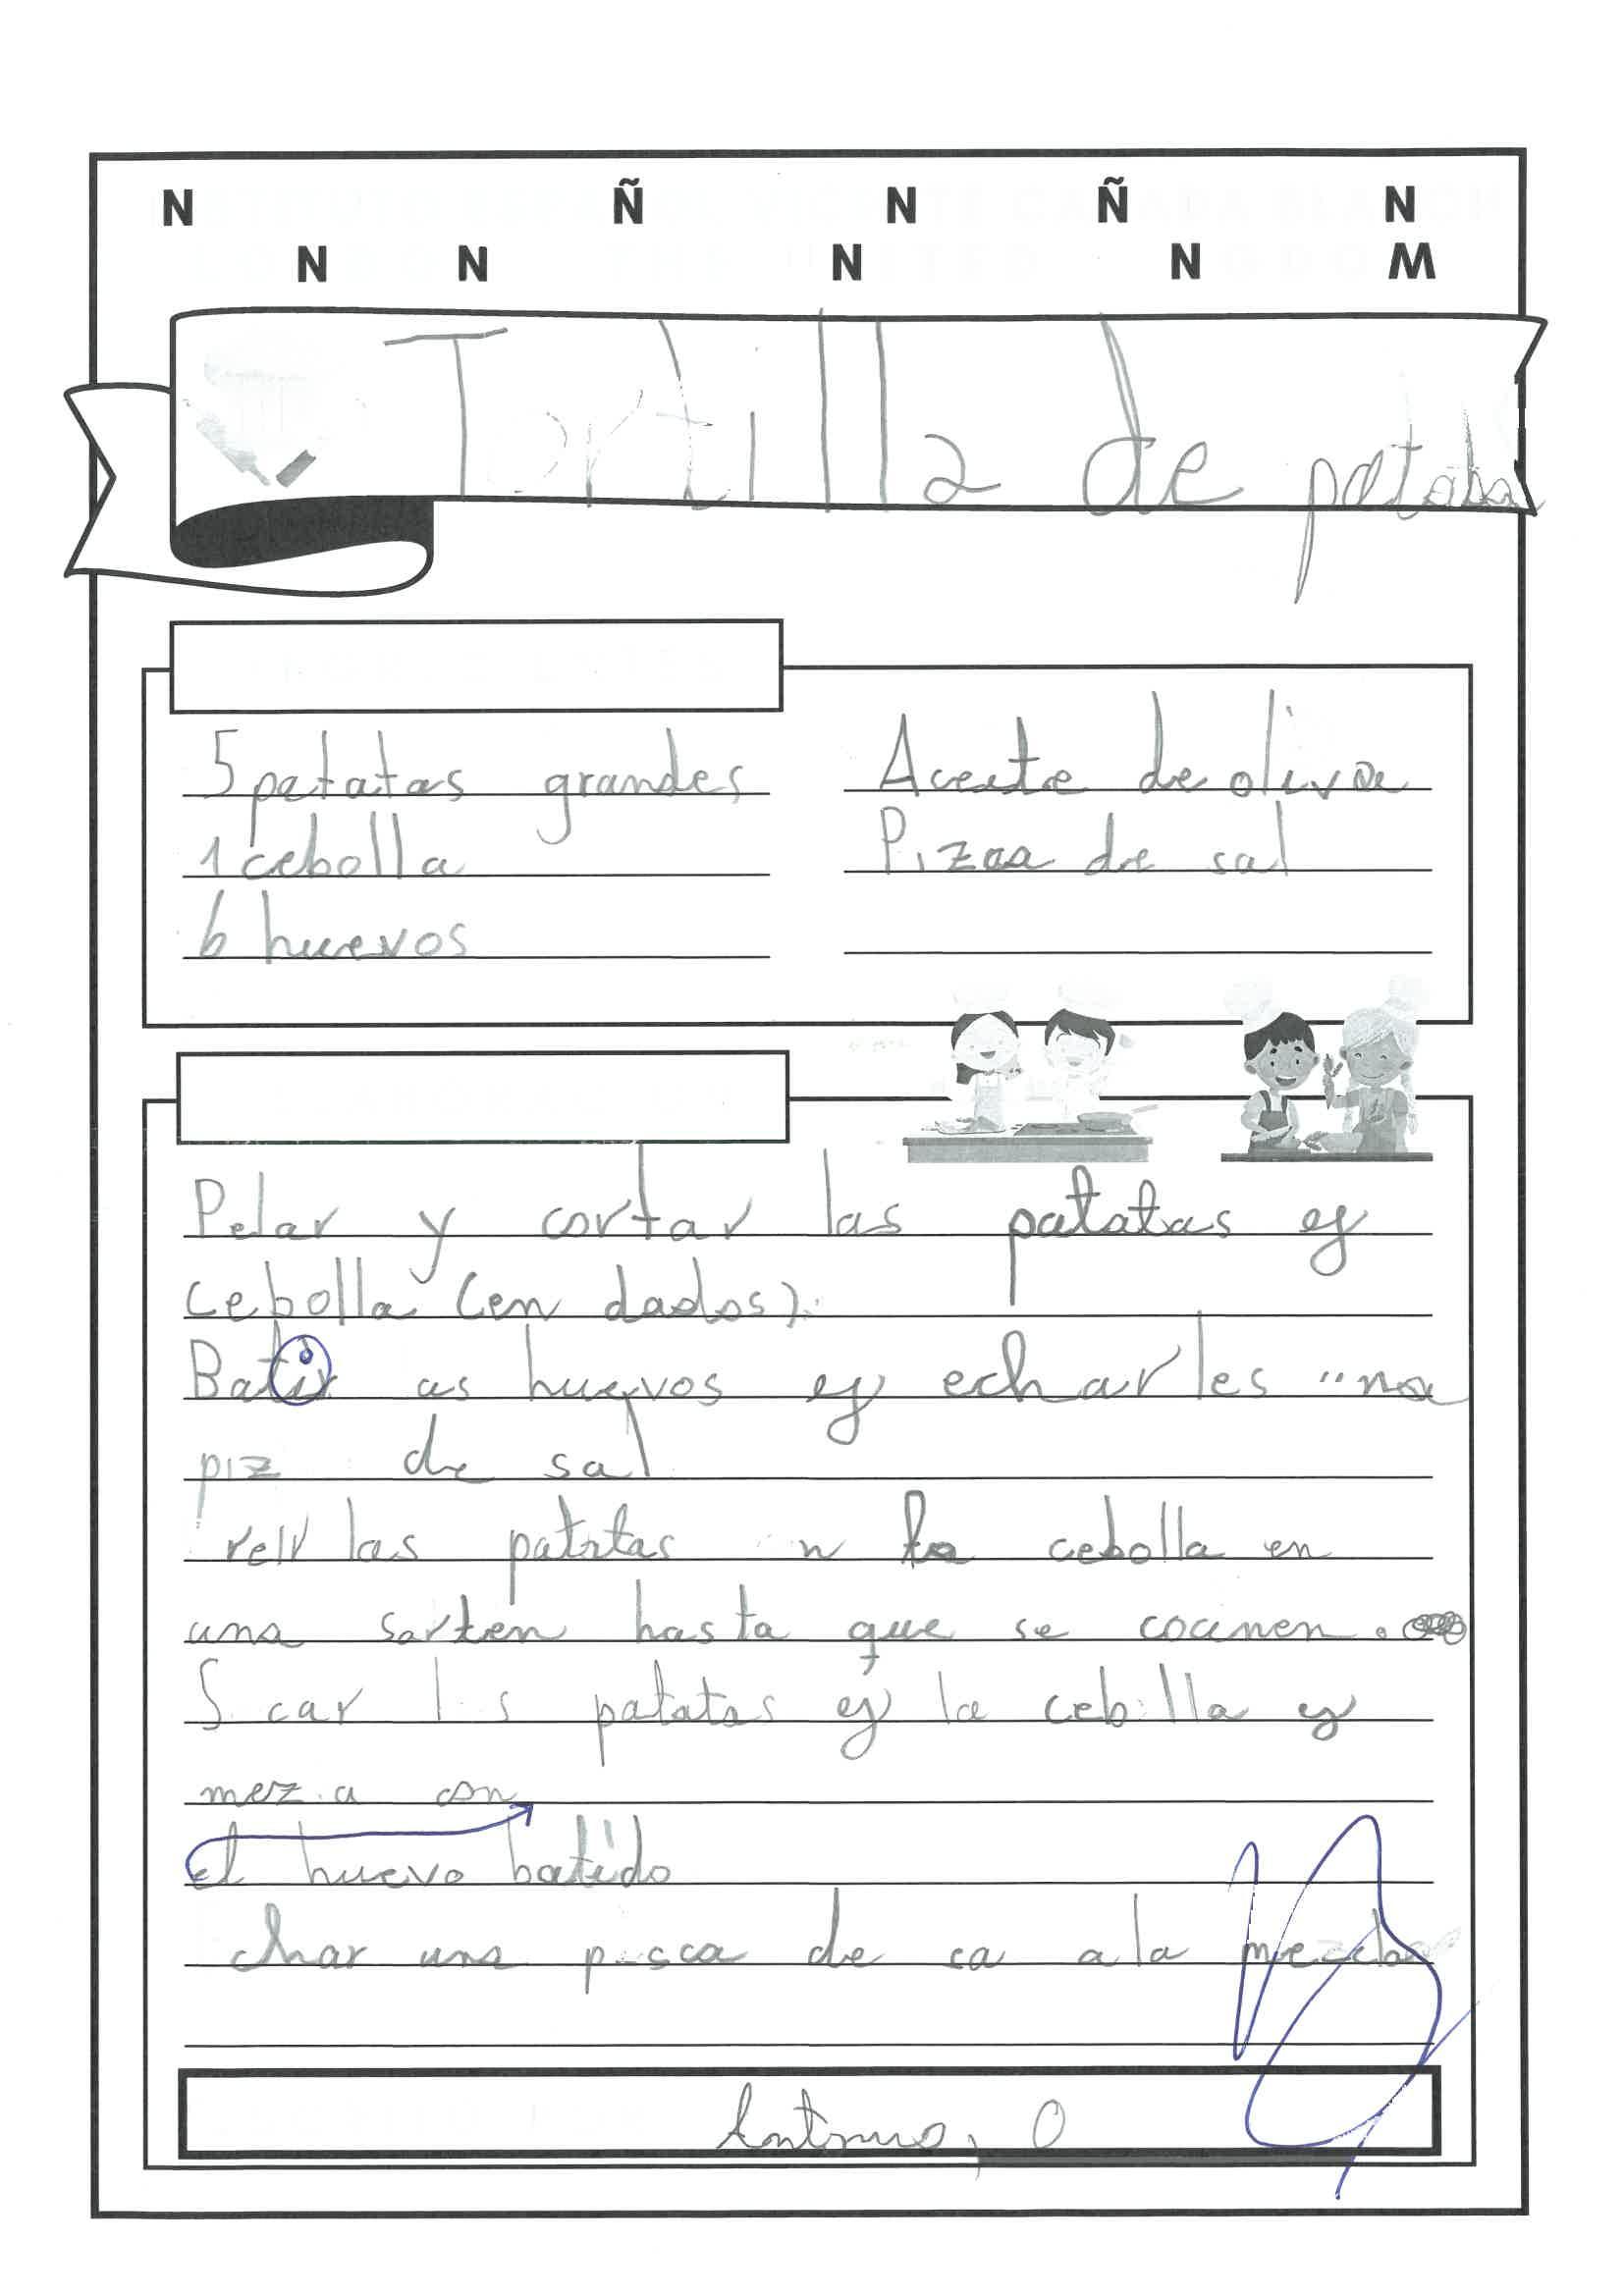 N Ñ N Ñ N
N N N N M
Tortilla de patata
5 patatas grandes
1 cebolla
6 huevos
Aceite de oliva
Pizca de sal
Pelar y cortar las patatas y
cebolla (en dados).
Batir as huevos y echarles una
piz de sal
reir las patatas n la cebolla en
una sarten hasta que se cocinen.
S car l s patatas y la ceb lla y
mez a con
el huevo batido
char una p sca de sa a la mezcla
Antonio, O